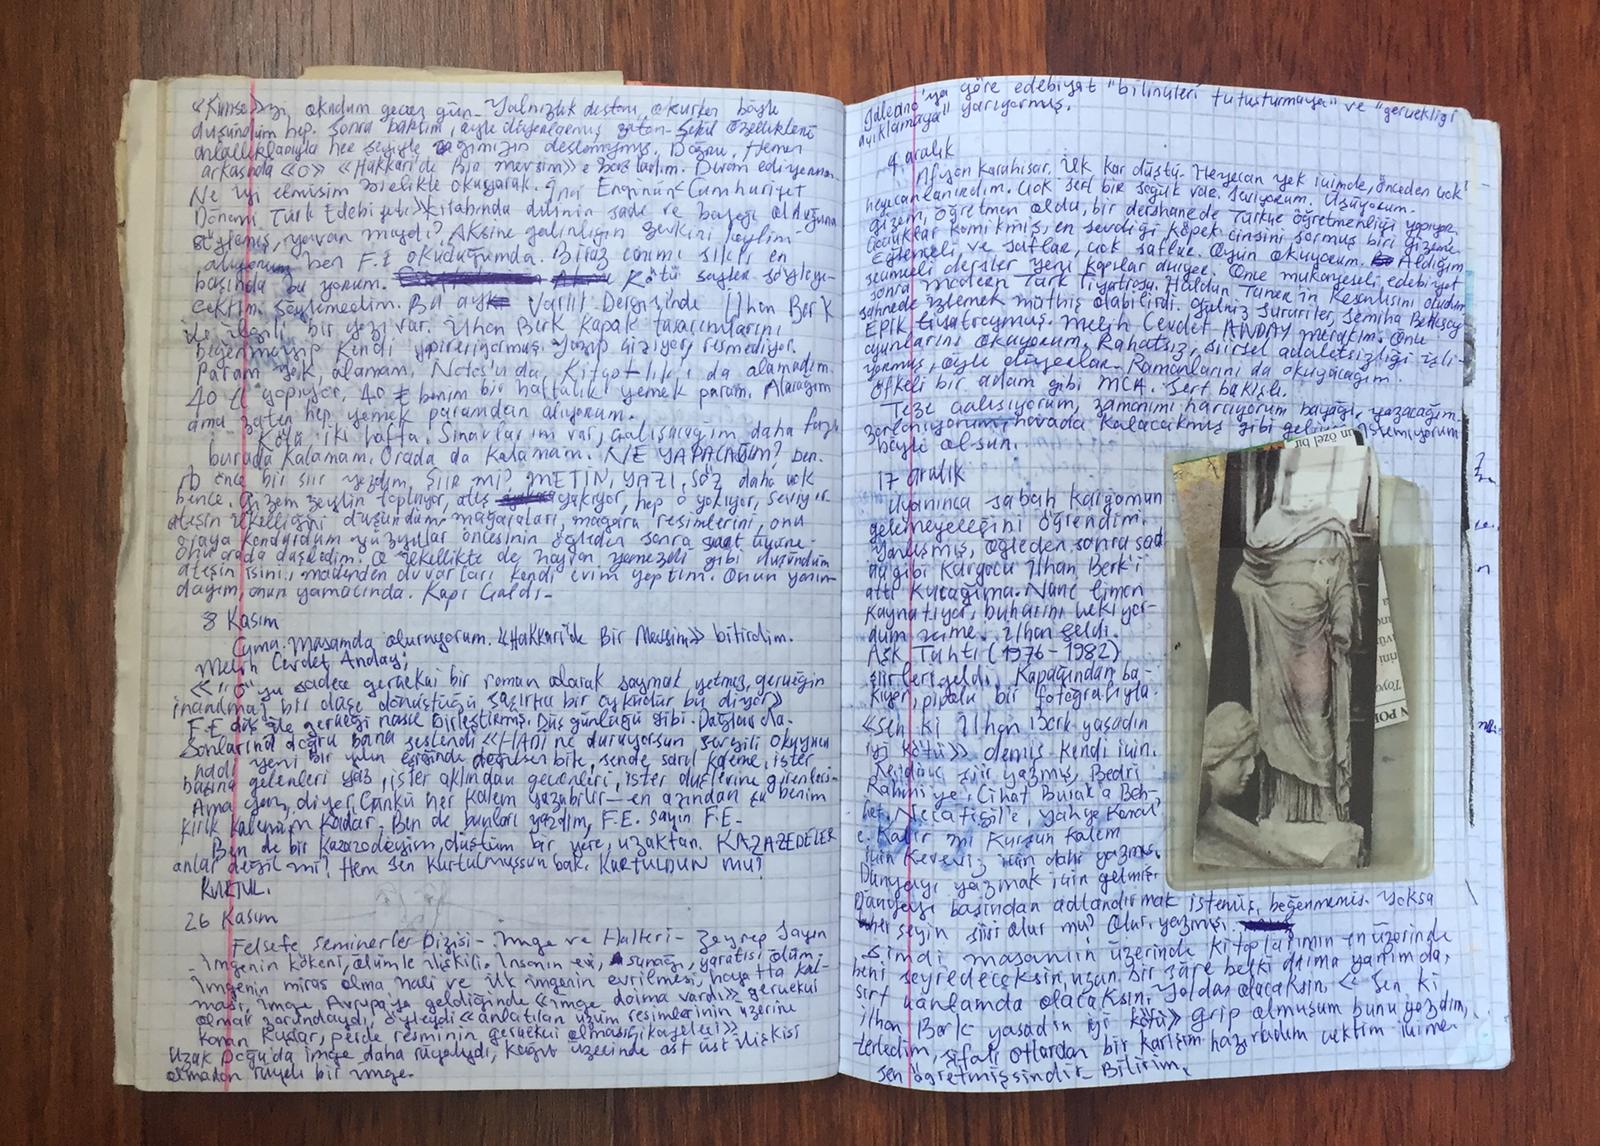 «Kimse»yi okudum geçen gün. Yalnızlık destanı, okurken böyle
düşündüm hep. Sonra baktım, öyle diyorlarmış zaten. Şekil özellikleri
her şeyiyle çağımızın destanıymış. Doğru. Hemen
arkasında «O» «Hakkari'de Bir Mevsim»e başladım. Devam ediyorum.
Ne iyi etmişim özellikle okuyarak. İnci Enginün «Cumhuriyet
Dönemi Türk Edebiyatı» kitabında dilinin sade ve bayağı olduğunu
söylemiş, yavan mıydı? Aksine yalınlığın zevkini
alıyorum ben F.E okuduğumda. Biraz canımı sıktı en
başında bu yorum. Kötü şeyler söyleye-
cektim. Söylemedim. Bu ay Varlık Dergisinde İlhan Berk
ile ilgili bir yazı var. İlhan Berk kapak tasarımlarını
beğenmeyip kendi yapıveriyormuş. Yazıp çiziyor, resmediyor.
Param yok, alamam. Notos'u da, Kitap-lık'ı da alamadım.
40 ₺ yapıyor, 40 ₺ benim bir haftalık yemek param. Alacağım
ama zaten hep yemek paramdan alıyorum.
Kötü iki hafta. Sınavlarım var, çalışacağım daha fazla
burada kalamam. Orada da kalamam. NE YAPACAĞIM? ben.
önce bir şiir yazdım, ŞİİR Mİ? METİN, YAZI, SÖZ daha çok
bence. Gizem zeytin topluyor, ateş yakıyor, hep o yakıyor, seviyor.
ateşin ilkelliğini düşündüm, mağaraları, mağara resimlerini, onu
oraya kondurdum yüzyıllar öncesinin öğleden sonra saat üçüne.
onu orada düşledim. O ilkellikte de hayvan yemezdi gibi düşündüm
ateşin isini, madenden duvarları kendi evim yaptım. Onun yanın-
dayım, onun yamacında. Kapı çaldı-
8 Kasım
Cuma. Masamda oturuyorum. «Hakkari'de Bir Mevsim» bitirdim.
Melih Cevdet Anday;
««O»yu sadece gerçekçi bir roman olarak saymak yetmez, gerçeğin
inanılmaz bir düşe dönüştüğü şaşırtıcı bir öyküdür bu diyor»
F.E düş ile gerçeği nasıl birleştirmiş. Düş günlüğü gibi. Dağları da.
Sonlarına doğru bana seslendi «HANİ ne duruyorsun sevgili okuyucu
hadi yeni bir yılın eşiğinde değilsen bile, sende sarıl kaleme, ister
başına gelenleri yaz, ister aklından geçenleri, ister düşlerine girenleri.
Ama yaz, diyor. Çünkü her kalem yazabilir — en azından şu benim
kırık kalemim kadar. Ben de bunları yazdım, F.E. sayın F.E.
Ben de bir kazazedeyim, düştüm bir yere, uzaktan. KAZAZEDELER
anlar değil mi? Hem sen kurtulmuşsun bak. KURTULDUN MU?
KURTUL.
26 Kasım
Felsefe Seminerler Dizisi - İmge ve Halleri - Zeynep Sayın
İmgenin kökeni, ölümle ilişkili. İnsanın evi, sunağı, yaratısı ölüm.
İmgenin miras olma hali ve ilk imgenin evrilmesi, hayatta kal-
ması, imge Avrupa'ya geldiğinde «imge daima vardı» gerçekçi
olmak zorundaydı, öyleydi «anlatılan üzüm resimlerinin üzerine
konan kuşlar, perde resminin gerçekçi olması,
Uzak Doğu'da imge daha rüyalıydı, kağıt üzerinde ast üst ilişkisi
olmadan rüyalı bir imge.
Galeano'ya göre edebiyat "bilinçleri tutuşturmaya" ve "gerçekliği
açıklamaya" yarıyormuş.
4 Aralık
Afyon Karahisar. İlk kar düştü. Heyecan yok içimde, önceden çok
heyecanlanırdım. Çok sert bir soğuk var. Seviyorum. Üşüyorum.
Gizem, öğretmen oldu, bir dershanede Türkçe öğretmenliği yapıyor.
Çocuklar komikmiş, en sevdiği köpek cinsini sormuş biri Gizeme.
Eğlenceli, ve saflar, çok saflar. Oyun okuyorum. Aldığım
seçmeli dersler yeni kapılar açıyor. Önce mukayeseli edebiyat
sonra modern Türk Tiyatrosu. Haldun Taner'in Keşanlısını okudum
sahnede izlemek müthiş olabilirdi. Gülriz Sururiler, Semiha Berksoy
Epik tiyatroymuş. Melih Cevdet ANDAY merakım. Onu
oyunlarını okuyorum. Rahatsız, şiirsel adaletsizliği işli-
yormuş, öyle diyorlar. Romanlarını da okuyacağım.
Öfkeli bir adam gibi MCA. Sert bakışlı.
Teze çalışıyorum, zamanımı harcıyorum bayağı, yazacağım.
zorlanıyorum, havada kalacakmış gibi geliyor. İstemiyorum
böyle olsun.
17 Aralık
Uyanınca sabah kargomun
gelemeyeceğini öğrendim.
Yanlışmış, öğleden sonra
gibi kargocu İlhan Berk'i
attı kucağıma. Nane limon
kaynatıyor, buharını çekiyor-
dum içime. İlhan geldi.
Aşk Tahtı (1976-1982)
şiirleri geldi. Kapağından ba-
kıyor, pipolu bir fotoğrafıyla.
«Sen ki İlhan Berk yaşadın
iyi kötü» demiş kendi için.
şiir yazmış, Bedri
Rahmi'ye, Cihat Burak'a Beh-
çet Necatigil'e, Yahya Kemal'
e. Kadir mi Kurşun kalem
için Kereviz için dahi yazmış.
Dünyayı yazmak için gelmiş.
Dünyayı başından adlandırmak istemiş, beğenmemiş. Yoksa
her şeyin şiiri olur mu? Olur yazmış.
Şimdi masamın üzerinde kitaplarımın en üzerinde
beni seyredeceksin uzun bir süre belki daima yanımda,
sırt çantamda olacaksın. Yoldaş olacaksın. «Sen ki
İlhan Berk yaşadın iyi kötü» grip olmuşum bunu yazdım,
terledim, şifalı otlardan bir karışım hazırladım çektim içime
sen öğretmişsindir. Bilirim.